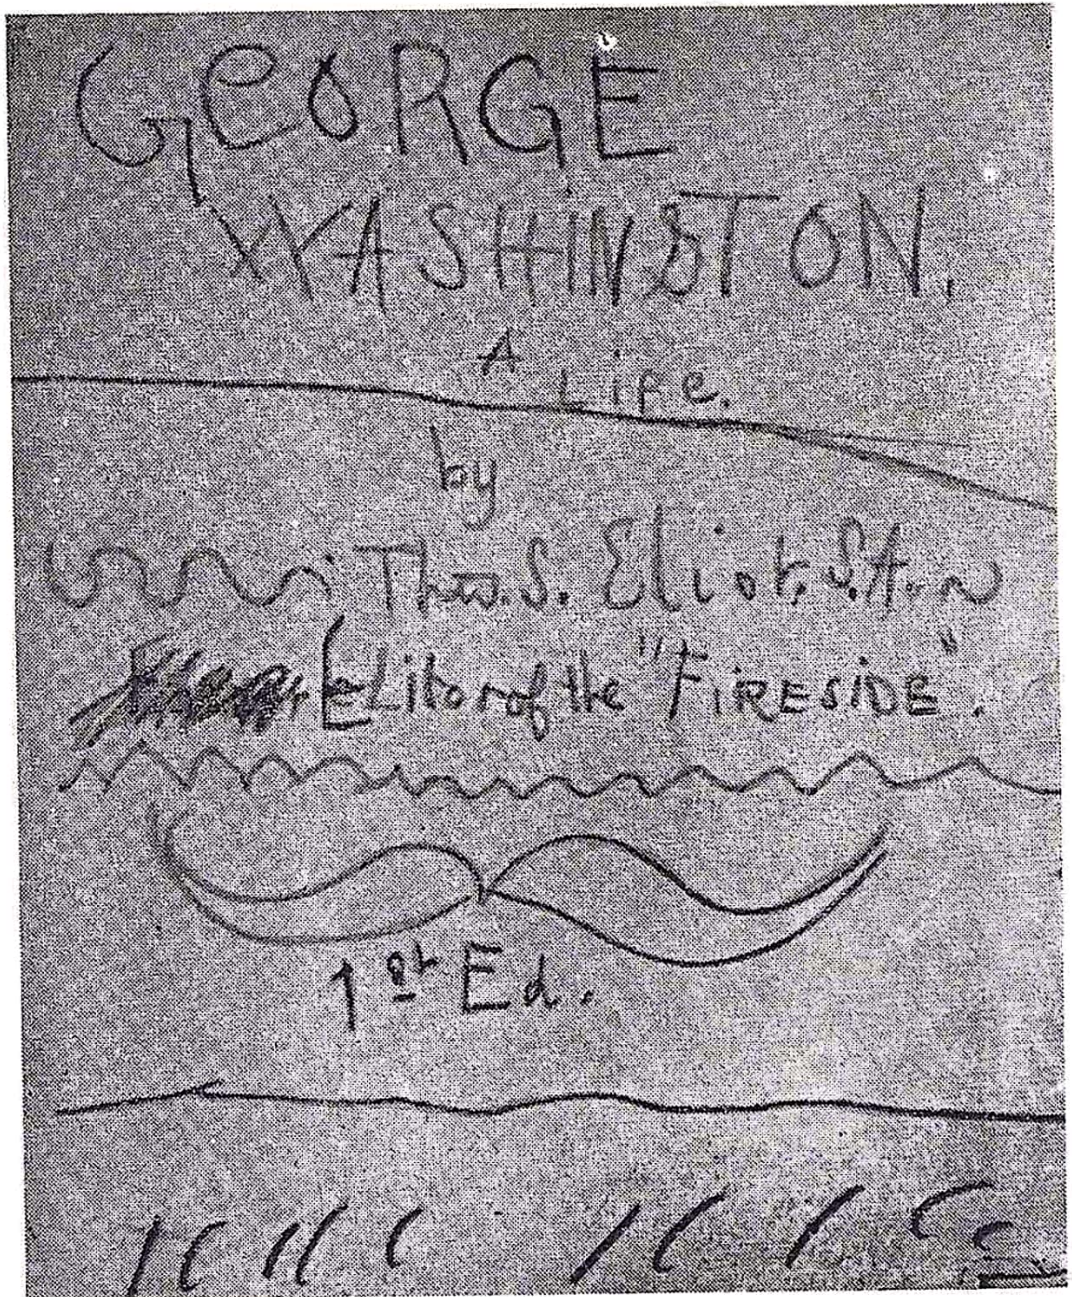 GeORGE
WASHINGTON.
A
Life.
by
Thos. S. Eliot, S.A.
Editor of the "FIRESIDE".
1st Ed.